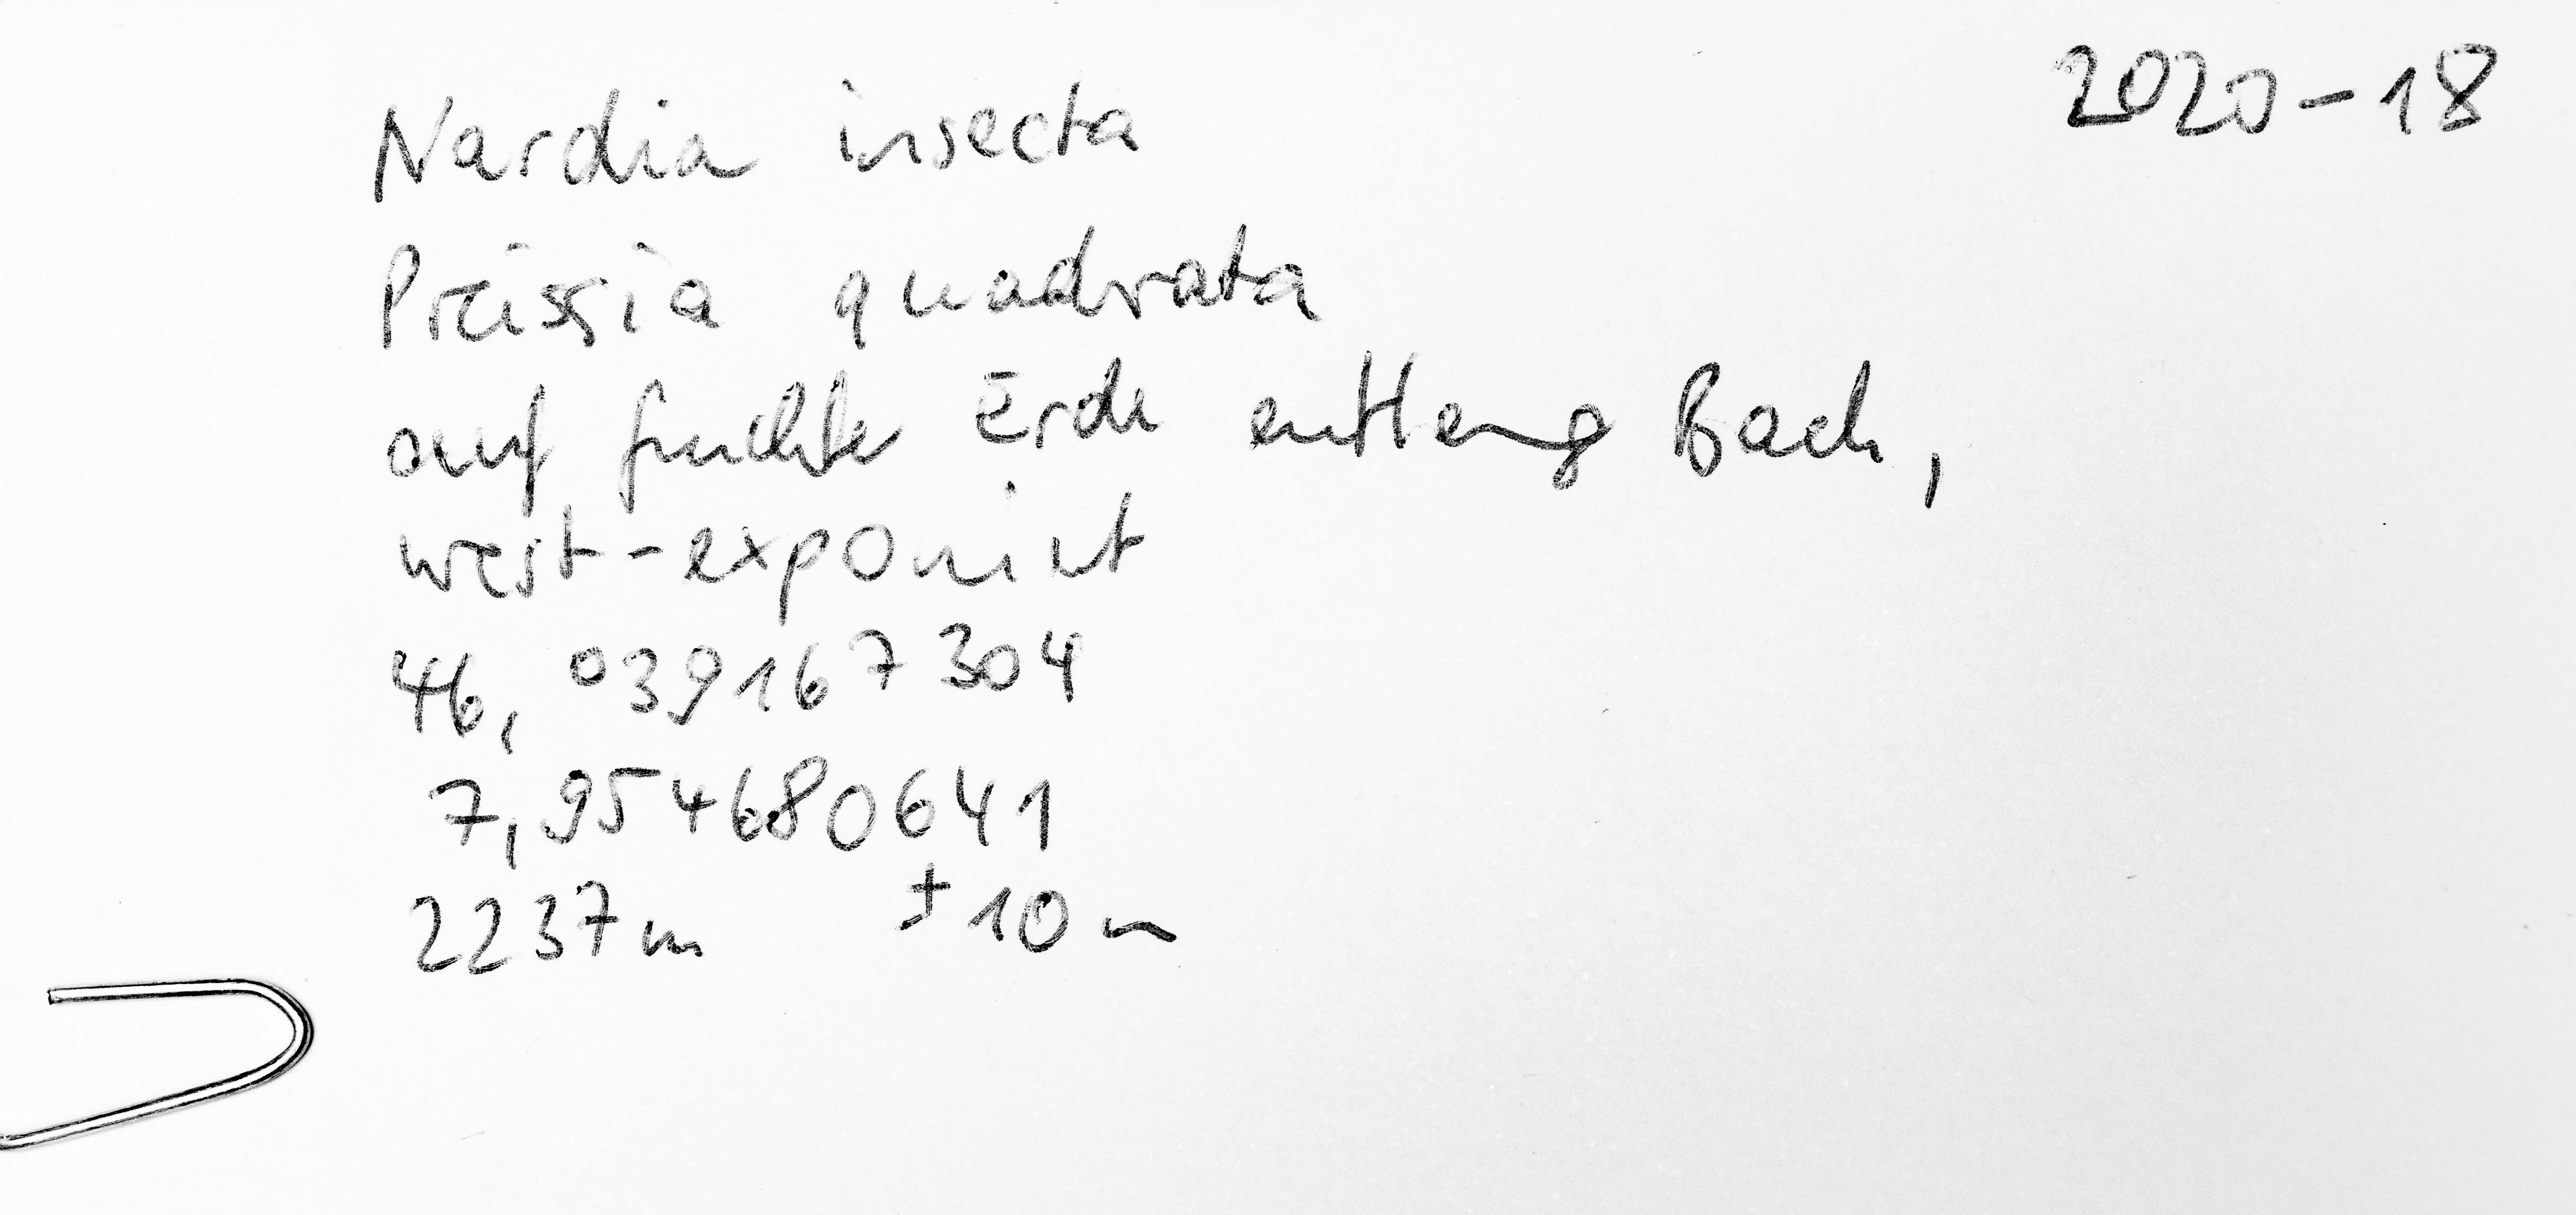 2020-18
Nardia insecta
Preissia quadrata
auf feuchter Erde entlang Bach,
west-exponiert
46,039167304
7,954680641
2237m ±10m